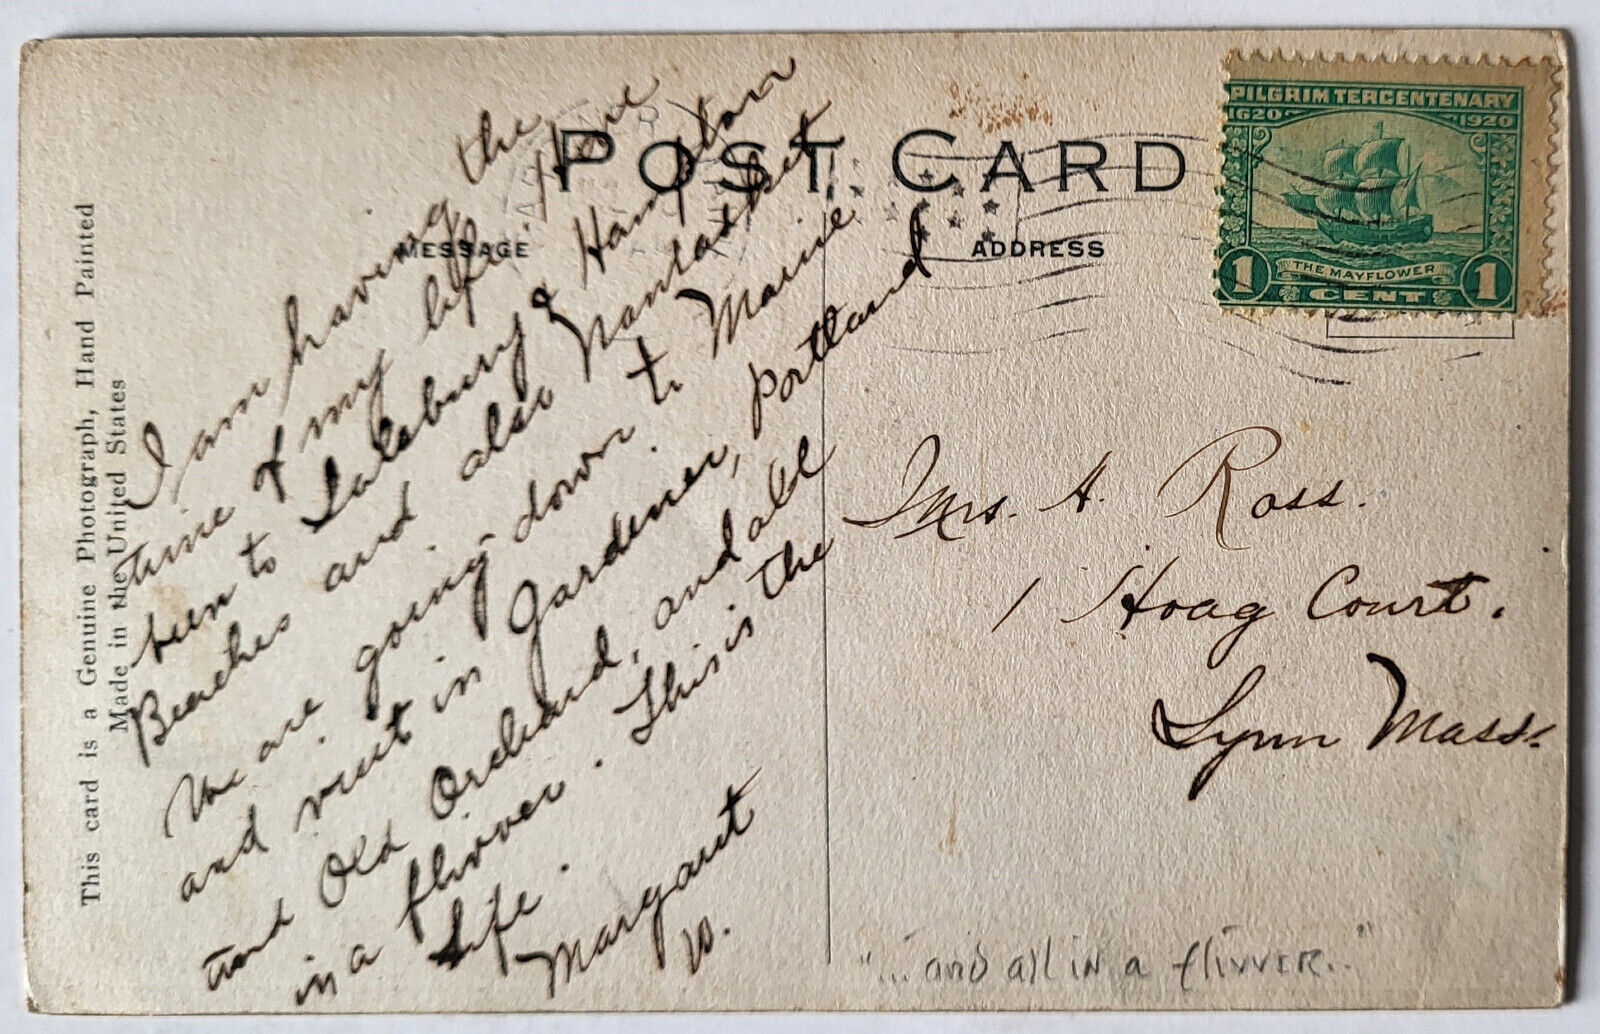 POST CARD
MESSAGE
ADDRESS
This card is a Genuine Photograph, Hand Painted
Made in the United States
PILGRIM TERCENTENARY
1620 1920
THE MAYFLOWER
1 CENT 1
I am having the
time of my life. Have
been to Salsbury & Hampton
Beaches and also Nantasket
We are going down to Maine
and visit in Gardener, Portland
and Old Orchard, and all
in a flivver. This is the
life.
Margaret
W.
Mrs. A. Ross.
1 Hoag Court.
Lynn Mass.
"...and all in a flivver.."